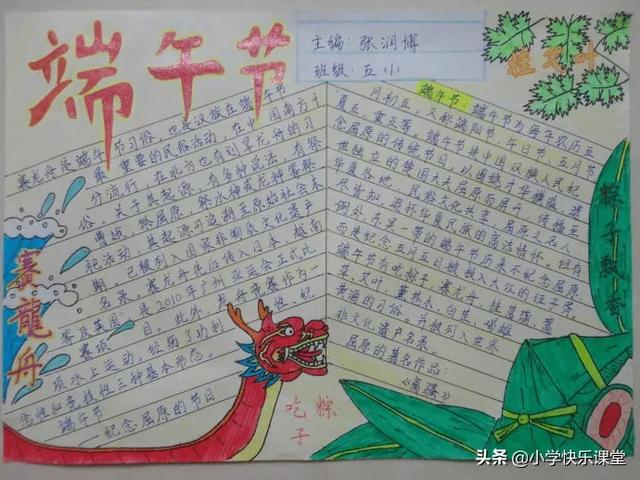 端午节
主编：张润博
班级：五小
挂艾叶
赛龙舟是端午节习俗，也是汉族在端午节
最重要的民俗活动，在中国南方十
分流行，在北方也有划旱龙舟的习
俗。关于其起源，有多种说法，有祭
曹娥，祭屈原，祭水神或龙神等祭
祀活动，其起源可追溯至原始社会末
期。已被列入国家非物质文化遗产
名录。赛龙舟先后传入日本、越南
等及英国，是2010年广州亚运会正式比
赛项目。此外，龙舟竞赛作为一
项水上运动，经历了功利性、纪
念性和竞技性三种基本形态。
端午节
纪念屈原的节日
端午节：端午节为每年农历五
月初五，又称端阳节、午日节、五月节
夏五、重五等，端午节是中国汉族人民纪
念屈原的传统节日，以围绕才华横溢、遗
世独立的楚国大夫屈原而展开，传播至
华夏各地，民俗文化共享，屈原之名人
尽皆知，追怀华夏民族的高洁情怀。但有
例外，东吴一带的端午节历来不纪念屈原，
而是纪念五月五日被投入大江的伍子胥
端午节有吃粽子，赛龙舟，挂菖蒲、蒿
草、艾叶，薰苍术、白芷，喝雄
黄酒的习俗。并被列入世界
非文化遗产名录。
屈原的著名作品：
《离骚》
赛龍舟
粽子飘香
吃粽子
头条 @小学快乐课堂